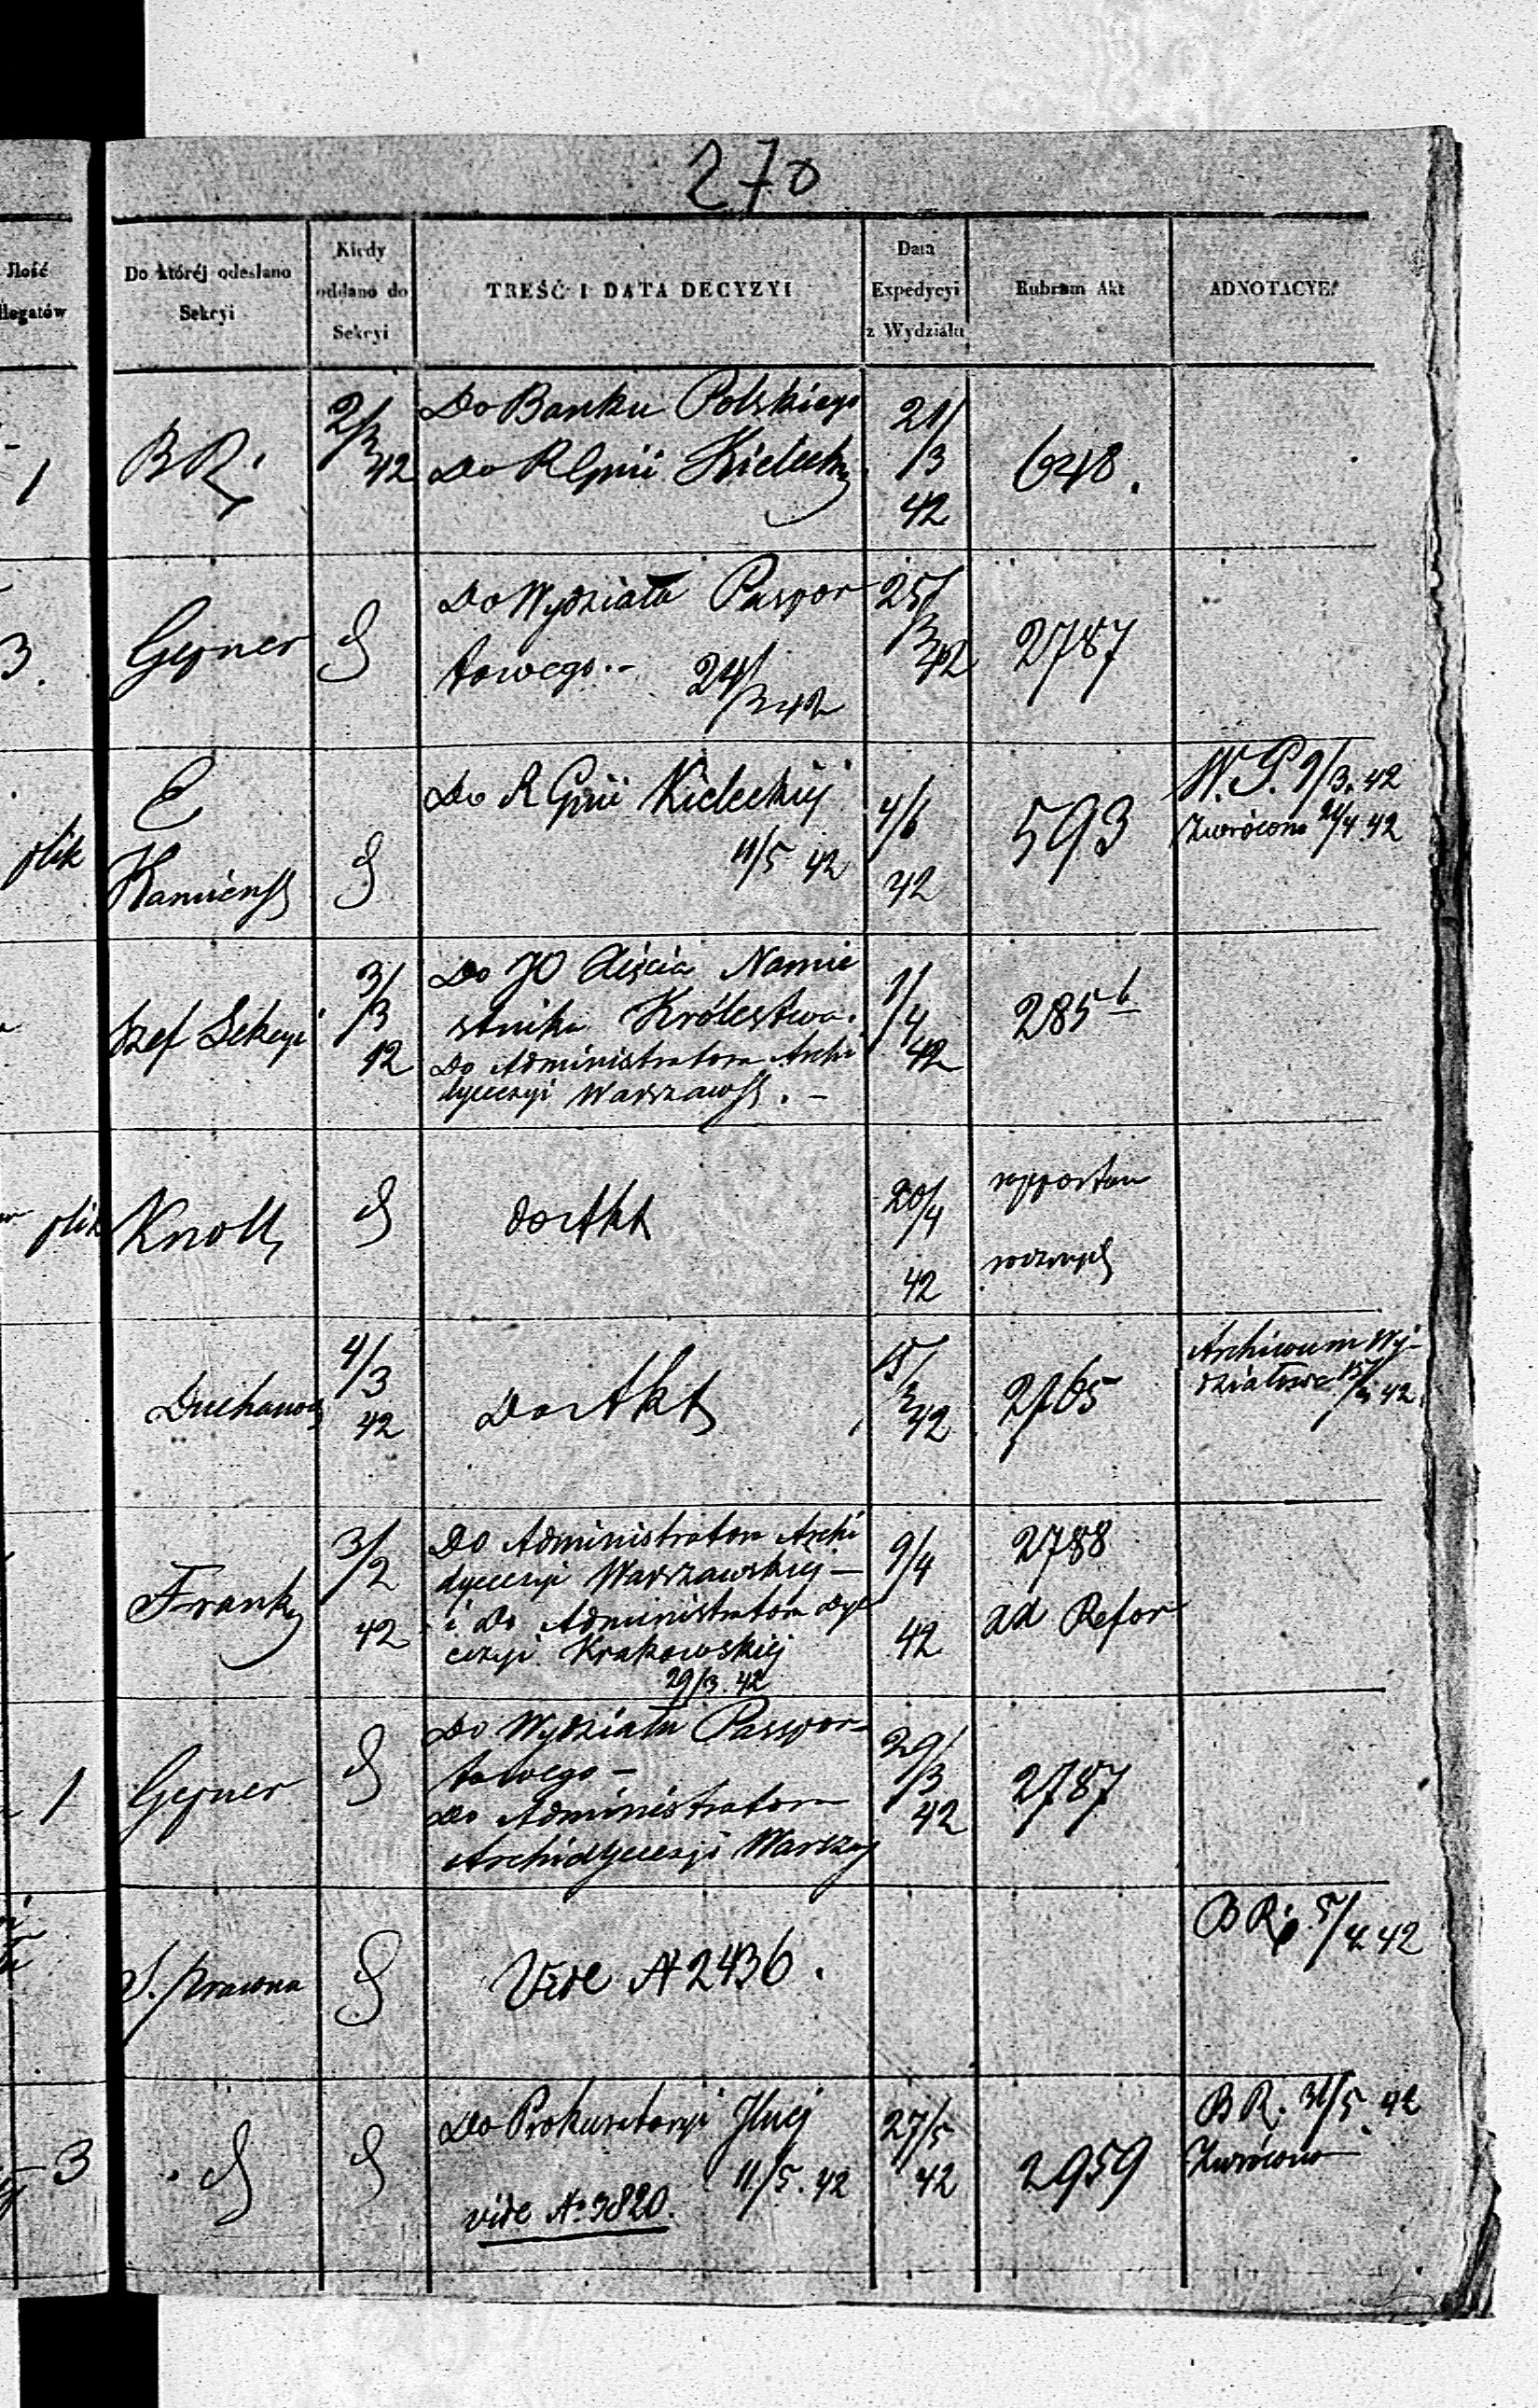 270
Ilość
llegatów
Do któréj odesłano
Sekcyi
Kiedy
oddano do
Sekcyi
TREŚĆ I DATA DECYZYI
Data
Expedycyi
z Wydziału
Rubrum Akt
ADNOTACYE
1
BR.
2/3 42
Do Banku Polskiego
Do RGnii Kieleck
21/
/3
42
648.
3.
Gepner
Do Wydziału Paspor
towego.-
24/3 42
25/
3
42
2787
plik
E
Kamiensk
Do R Gnii Kieleckiej
11/5 42
4/6
42
593
W.P. 9/3. 42
Zwrócono 21/4 42
Szef Sekcyi
3/
/3
42
Do JO Xięcia Namie
stnika Królestwa.
Do Administratora Archi
dyecezyi Warszawsk. -
1/
4
42
285 b
plik
Knoll
do Akt
20/4
42
rapporta
Duchanow
4/3
42
Do Akt
15/
3
42
2765
Archiwum Wy-
działowe 15/3 42.
Frank
3/2
42
Do Administratora Archi
dyecezyi Warszawskiej —
i Do Administratora dye
cezyi Krakowskiej
29/3. 42
9/4
42
2788
ad Refor
1
Gepner
Do Wydziału Passpor-
towego —
Do Administratora
Archidyecezyi Warszaw
29/
/3
42
2787
S. prawna
Vide N 2436.
BR. 5/4 42
3
Do Prokuratoryi Jlnej
11/5. 42
vide No 3820.
27/5
42
2959
BR. 31/5. 42
Zwrócono